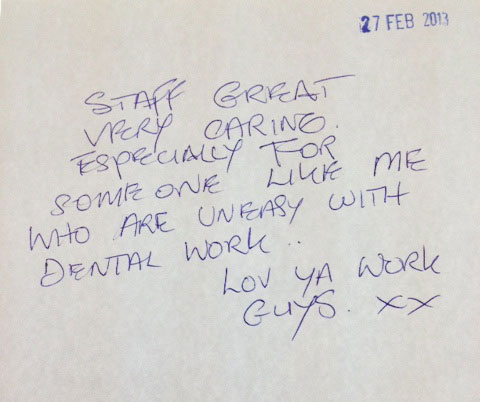 27 FEB 2013
STAFF GREAT
VERY CARING.
ESPECIALLY FOR
SOMEONE LIKE ME
WHO ARE UNEASY WITH
DENTAL WORK..
LOV YA WORK
GUYS. XX